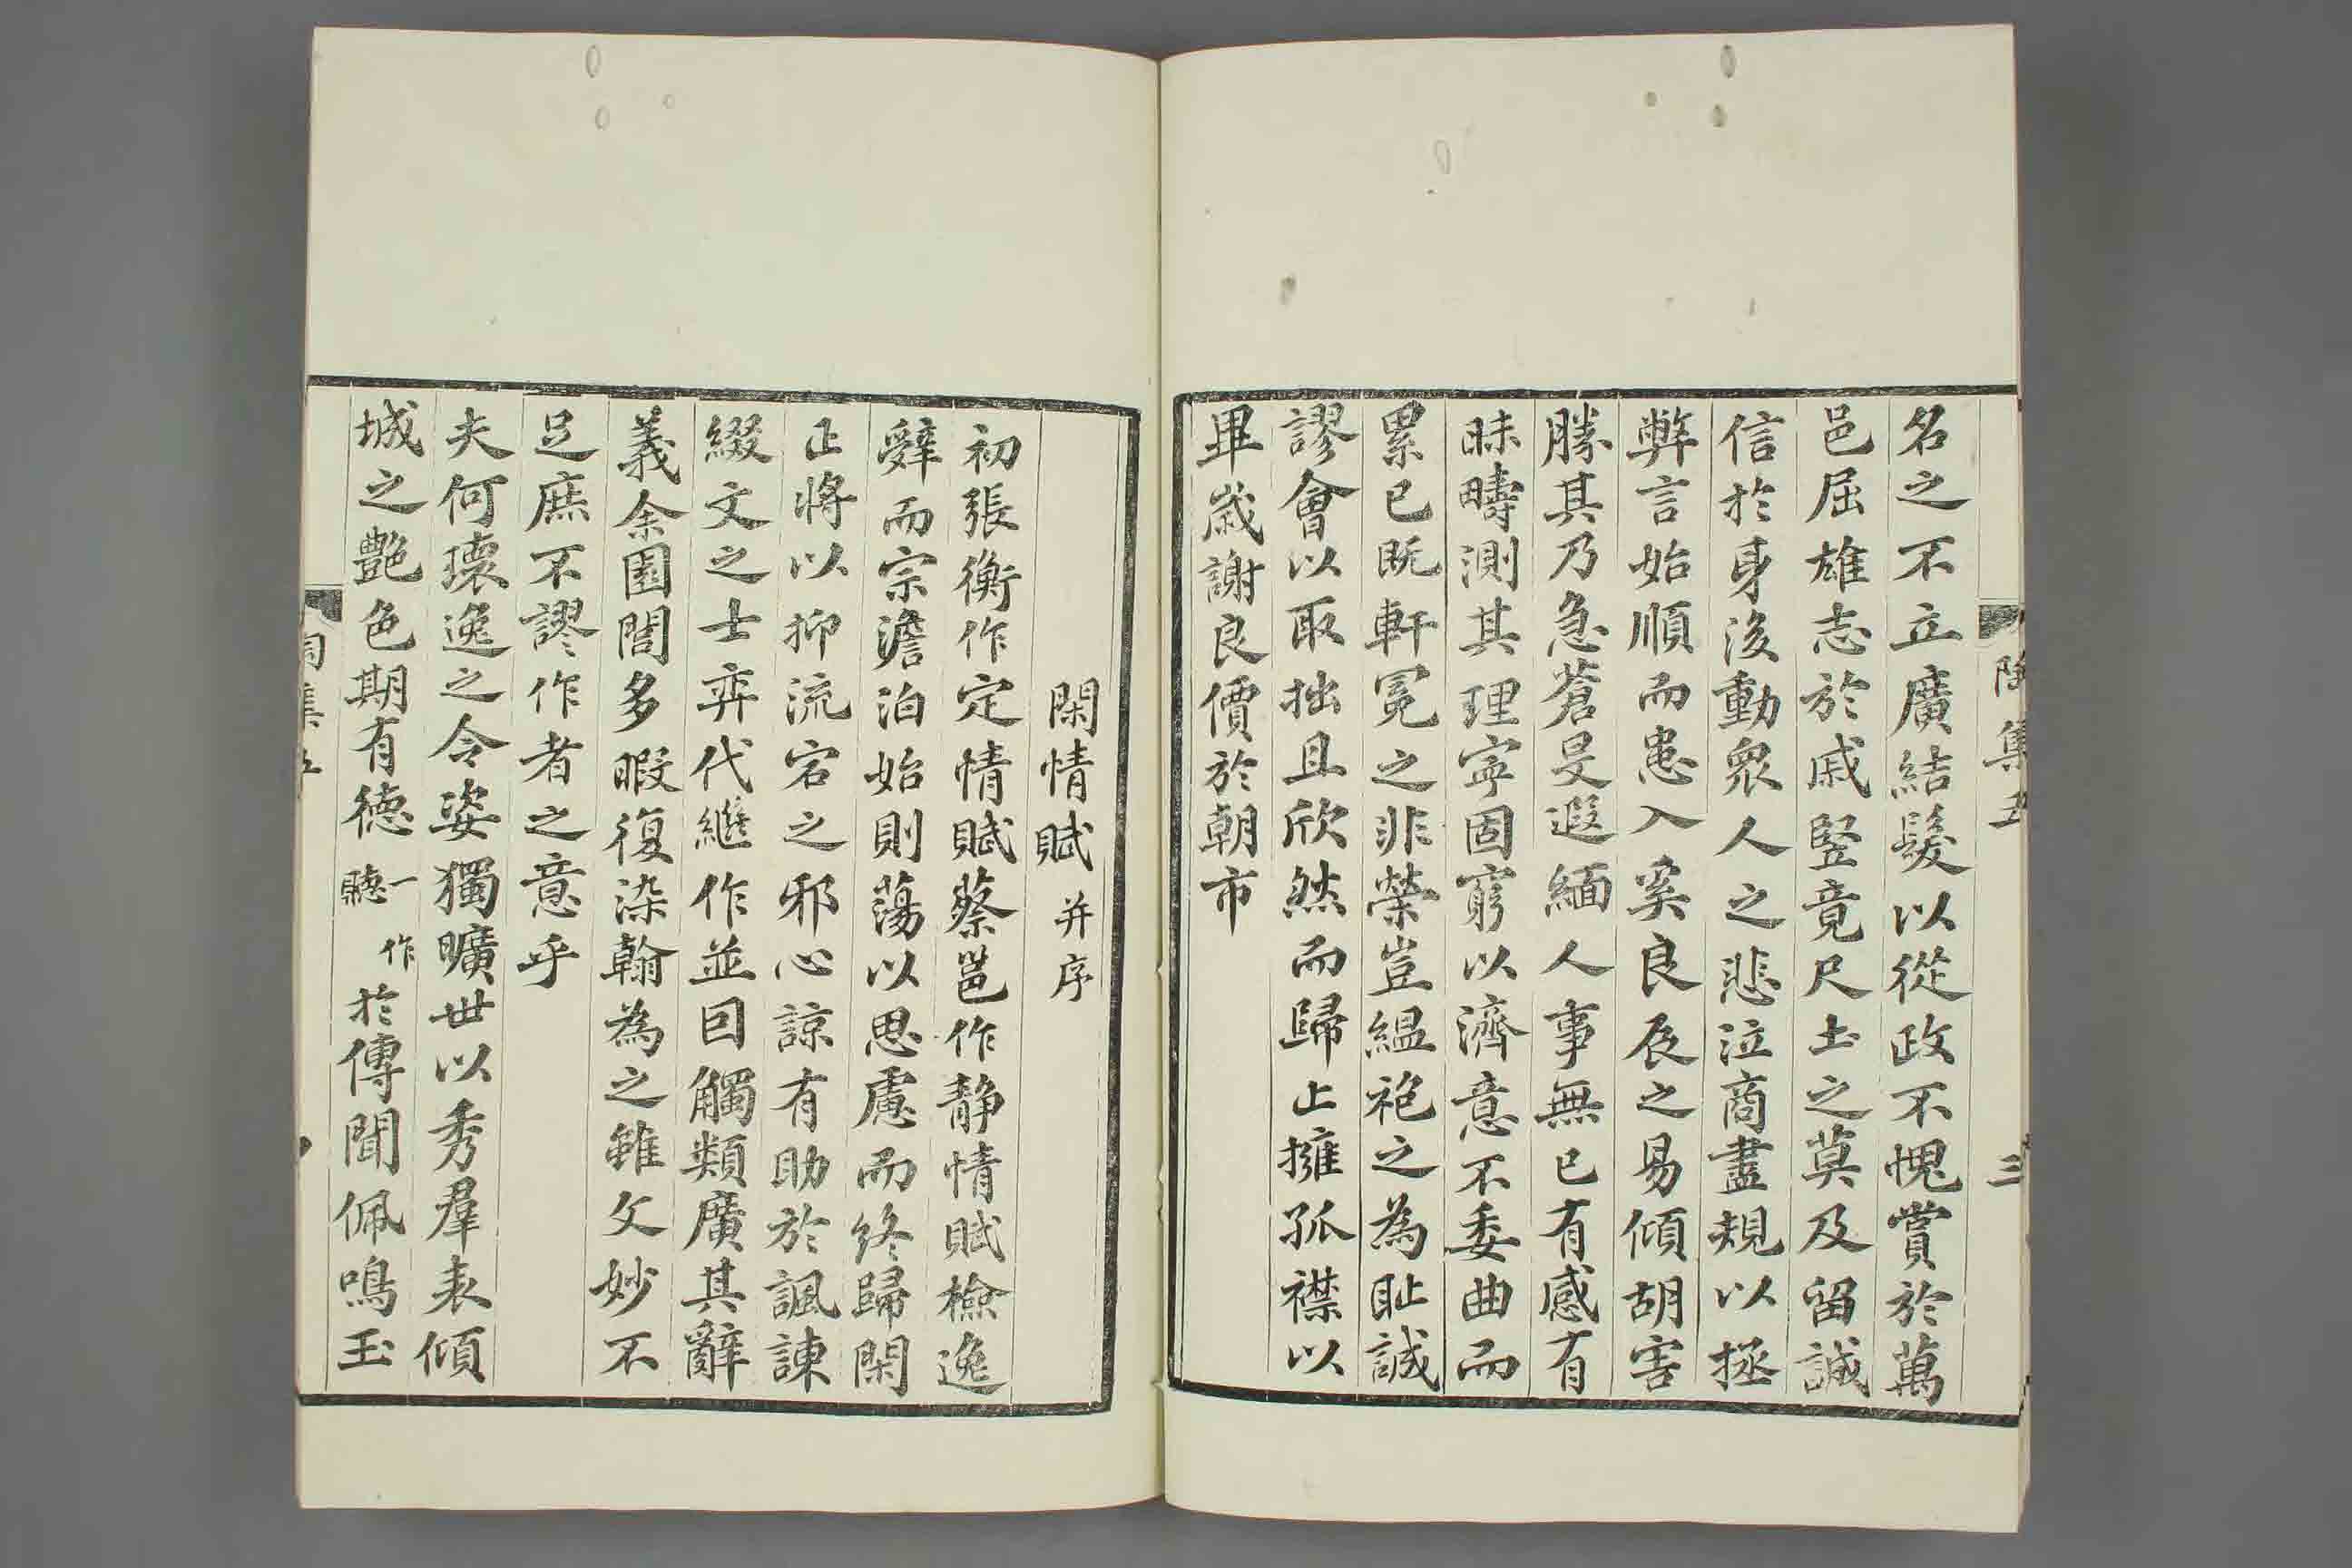 陶集五
三
名之不立廣結髮以從政不愧賞於萬
邑屈雄志於戚豎竟尺土之莫及留誠
信於身後動衆人之悲泣商盡規以拯
弊言始順而患入奚良辰之易傾胡害
勝其乃急蒼旻遐緬人事無已有感有
昧疇測其理寧固窮以濟意不委曲而
累已既軒冕之非榮豈緼袍之為耻誠
謬會以取拙且欣然而歸止擁孤襟以
畢歲謝良價於朝市
閑情賦并序
初張衡作定情賦蔡邕作静情賦檢逸
辭而宗澹泊始則蕩以思慮而終歸閑
正將以抑流宕之邪心諒有助於諷諫
綴文之士奕代繼作並因觸類廣其辭
義余園閭多暇復染翰為之雖文妙不
足庶不謬作者之意乎
夫何瓌逸之令姿獨曠世以秀羣表傾
城之艶色期有德一作聽於傳聞佩鳴玉
陶集五